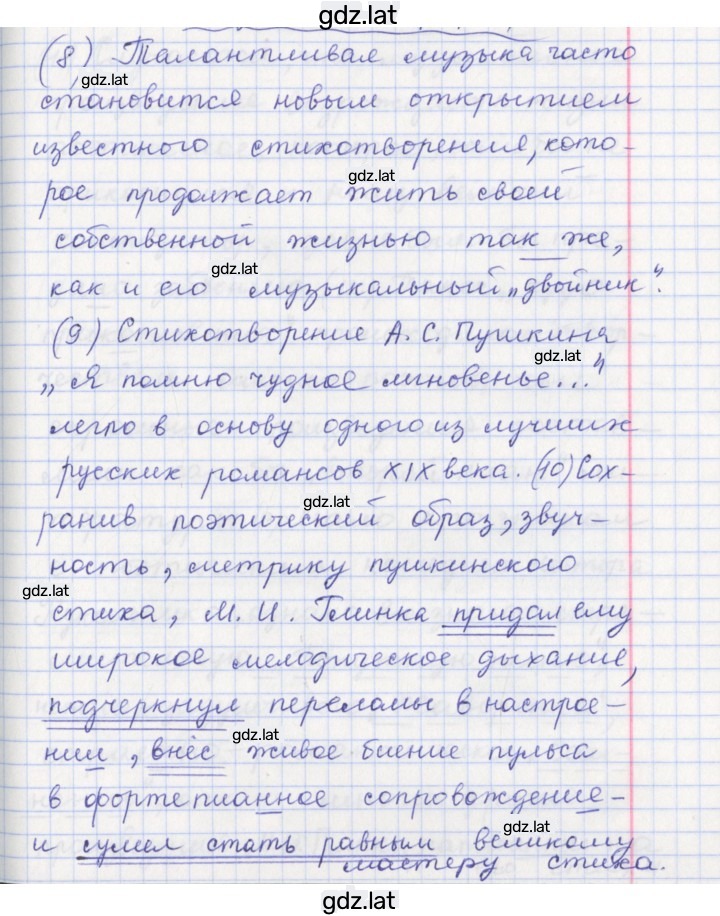 gdz.lat
(8) Талантливая музыка часто
gdz.lat
становится новым открытием
известного стихотворения, кото-
gdz.lat
рое продолжает жить своей
собственной жизнью так же,
gdz.lat
как и его музыкальный „двойник“.
(9) Стихотворение А. С. Пушкина
gdz.lat
„Я помню чудное мгновенье...“
легло в основу одного из лучших
русских романсов XIX века. (10) Сох-
gdz.lat
ранив поэтический образ, звуч-
ность, метрику пушкинского
gdz.lat
стиха, М. И. Глинка придал ему
широкое мелодическое дыхание,
подчеркнул переломы в настрое-
gdz.lat
нии, внёс живое биение пульса
в фортепианное сопровождение-
gdz.lat
и сумел стать равным великому
мастеру стиха.
gdz.lat